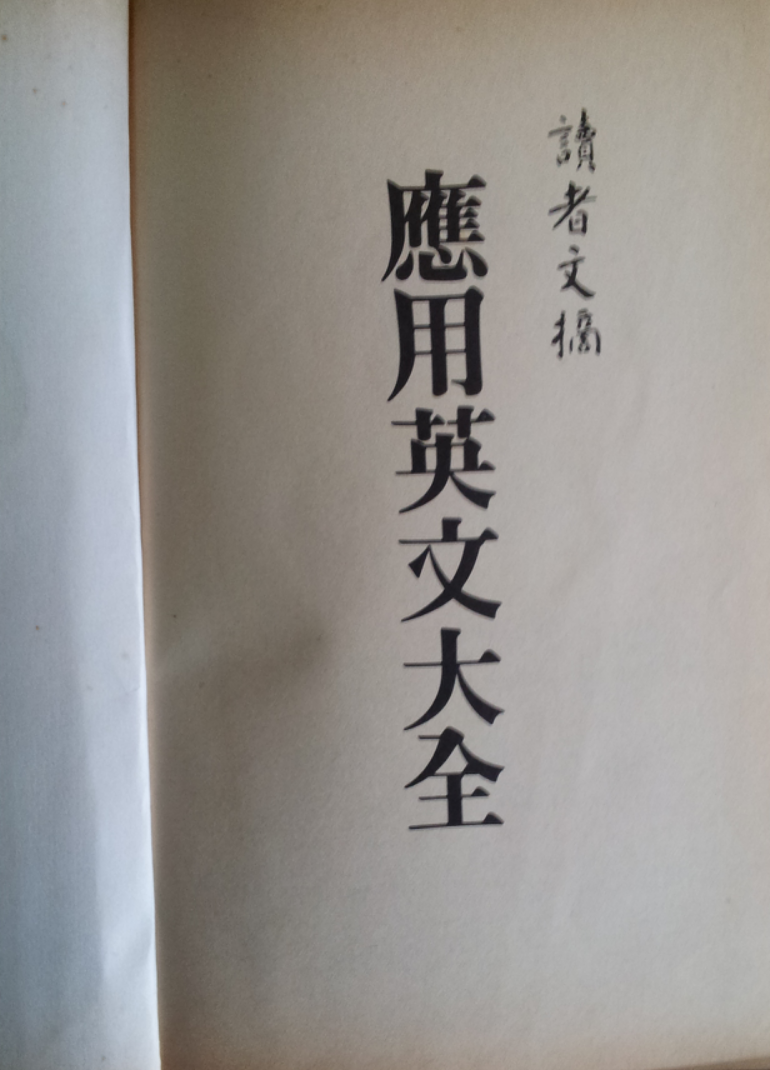 讀者文摘
應用英文大全